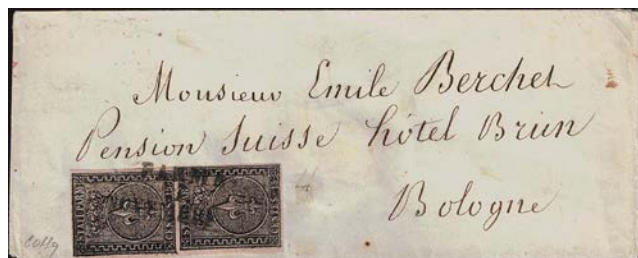 Monsieur Emile Berchet
Pension Suisse hôtel Brun
Bologne